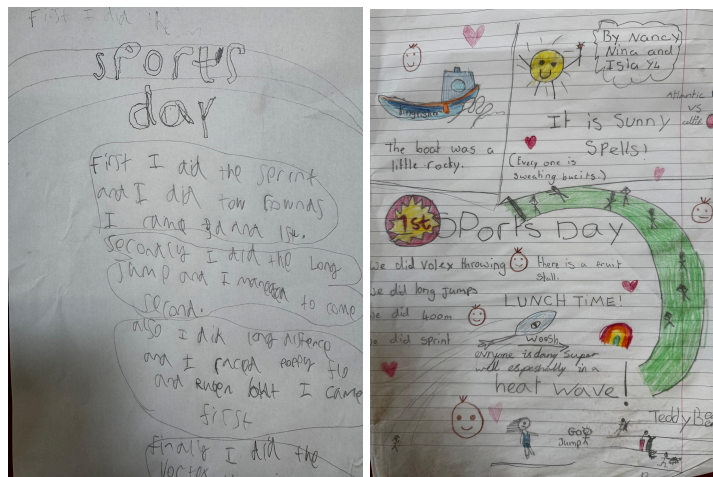 First I did the
sports
day
First I did the sprint
and I did tow rounds
I came 3d and 1st.
Secondly I did the Long
Jump and I maneged to come
second.
also I did long distence
and I raced poppy flo
and Ruben but I came
first
finally I did the
Vortex
By Nancy
Nina and
Isla Y4
Atlantic
VS
It is Sunny
Spells!
(Every one is
sweating bucits.)
The boat was a
little rocky.
1st
Sports Day
we did Volex throwing
we did long jumps
we did 400m
we did sprint
there is a fruit
stall.
LUNCH TIME!
Woosh
everyone is doing super
well espeshally in a
heat wave!
Go
Jump
Teddy